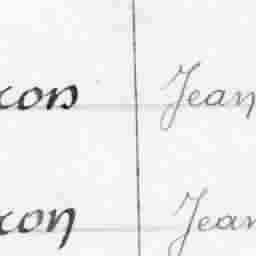 xon Jean
xon Jean